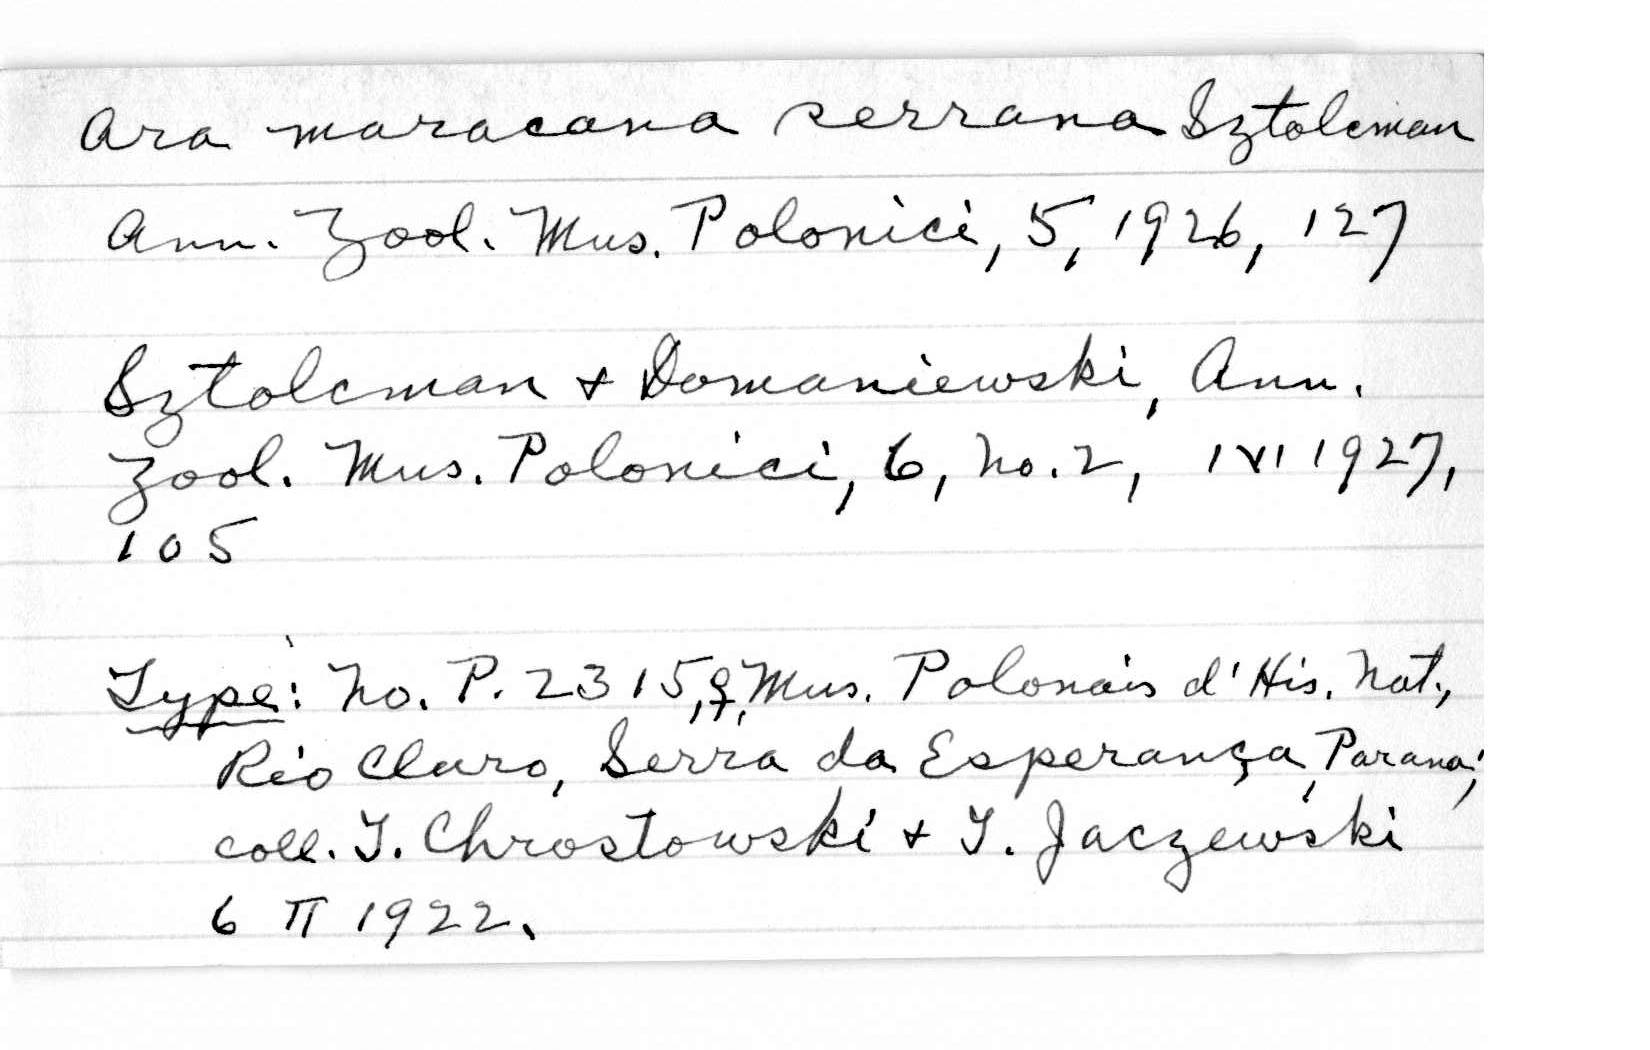 Ara maracana serrana Sztolcman
Ann. Zool. Mus. Polonici, 5, 1926, 127
Sztolcman & Domaniewski, Ann.
Zool. Mus. Polonici, 6, No. 2, 1 VI 1927,
105
Type: No. P. 2315, ♀, Mus. Polonais d'His. Nat.,
Rio Claro, Serra da Esperança, Paraná;
coll. T. Chrostowski & T. Jaczewski
6 II 1922.